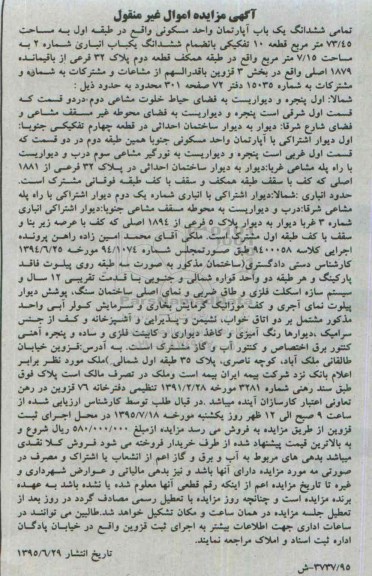 آگهی مزایده اموال غیر منقول
تمامی ششدانگ یک باب آپارتمان واحد مسکونی واقع در طبقه اول به مساحت
۷۳/۴۵ متر مربع قطعه ۱۰ تفکیکی بانضمام ششدانگ یکباب انباری شماره ۲ به
مساحت ۷/۱۵ متر مربع واقع در طبقه همکف قطعه دوم پلاک ۳۲ فرعی از باقیمانده
۱۸۷۹ اصلی واقع در بخش ۳ قزوین باقدرالسهم از مشاعات و مشترکات به شماره
و مشترکات به شماره ۱۵۰۳۵ دفتر ۷۲ صفحه ۳۰۱ محدود به حدود ذیل :
شمالا: اول پنجره و دیواریست به فضای حیاط خلوت مشاعی دوم دردو قسمت که
قسمت اول شرقی است پنجره و دیواریست به فضای محوطه غیر مسقف مشاعی و
فضای شارع شرقا: دیوار به دیوار ساختمان احداثی در قطعه چهارم تفکیکی جنوبا:
اول دیوار اشتراکی با آپارتمان واحد مسکونی جنوبا همین طبقه دوم در دو قسمت که
قسمت اول غربی است پنجره و دیواریست به نورگیر مشاعی سوم درب و دیواریست
با راه پله مشاعی غربا:دیوار به دیوار ساختمان احداثی در پلاک ۳۲ فرعی از ۱۸۸۱
اصلی که کف با سقف طبقه همکف و سقف با کف طبقه فوقانی مشترک است.
حدود انباری :شمالا:دیوار اشتراکی با انباری شماره یک دوم دیوار اشتراکی با راه پله
مشاعی شرقا:درب و دیواریست به محوطه مسقف مشاعی جنوبا:دیوار اشتراکی انباری
شماره ۳ غربا دیوار به دیوار پلاک ۵ فرعی از ۱۸۹۴ اصلی که کف با عرصه زیر بنا و
سقف با کف طبقه اول مشترک است. ملکی آقای محمـد امـین زاده و راهـن پرونـده
اجرایی کلاسه ۹۴۰۰۰۵۸ طبق صورتمجلس شماره ۹۴/۱۰۷۴ مورخه ۱۳۹۴/۶/۲۵
کارشناس دستی دادگستری(ساختمان مذکور به صورت سه طبقه روی پیلوت فاقد
پارکینگ و هر طبقه دو واحد قواره شمالی و جنـوبی بـا قـدمت تقریبـی ۱۲ سـال و
سیستم سازه اسکلت فلزی و طاق ضربی و نمای اصلی ساختمان سنگ، پوشش دیوار
پیلوت نمای آجری و کف موزائیک گرمایش بخاری و سرمایش کـولر آبـی واحـد
مذکور مشتمل بر دو اتاق خواب، نشیمن و پـذیرایی و آشـپزخانه و کـف از جـنس
سرامیک ،دیوارها رنگ آمیزی و کاغذ دیواری و کابینت فلزی و ساده و پنجره آهنـی
کنتور برق اختصاصی و کنتور آب و گاز مشترک است. بـه آدرس:قـزوین خیابـان
طالقانی ملک آباد، کوچه ناصری، پلاک ۳۵ طبقه اول شمالی.)ملک مورد نظر برابـر
اعلام بانک نزد شرکت بیمه ایران بیمه است وملک در تصرف مالک است پلاک فوق
طبق سند رهنی شماره ۳۲۸۱ مورخه ۱۳۹۱/۲/۲۸ تنظیمی دفترخانه ۷۶ قزوین در رهن
تعاونی اعتبار کارسازان آینده میباشد .در قبال طلب توسط کارشناس ارزیابی شـده از
ساعت ۹ صبح الی ۱۲ ظهر روز یکشنبه مورخـه ۱۳۹۵/۷/۱۸ در محـل اجـرای ثبـت
قزوین از طریق مزایده به فروش می رسد مزایده ازمبلغ ۵۸۰/۰۰۰/۰۰۰ ریال شروع و
به بالاترین قیمت پیشنهاد شده از طرف خریدار فروخته می شود فـروش کـلا نقـدی
میباشد بدهی های مربوط به آب و برق و گاز اعم از انشعاب یا اشتراک و مصرف در
صورتی مه مورد مزایده دارای آنها باشد و نیز بدهی مالیاتی و عـوارض شـهرداری و
غیره تا تاریخ مزایده اعم از اینکه رقم قطعی آنها معلوم شده یا نشده باشد بـه عهـده
برنده مزایده است و چنانچه روز مزایده با تعطیل رسمی مصادف گردد در روز بعد از
تعطیل جلسه مزایده در همان ساعت و مکان تشکیل خواهد شد.طالبین می توانند در
ساعات اداری جهت اطلاعات بیشتر به اجرای ثبت قزوین واقع در خیابـان پادگـان
اداره ثبت اسناد و املاک مراجعه نمایند.
تاریخ انتشار ۱۳۹۵/۶/۲۹
۳۷۳۷/۹۵-ش